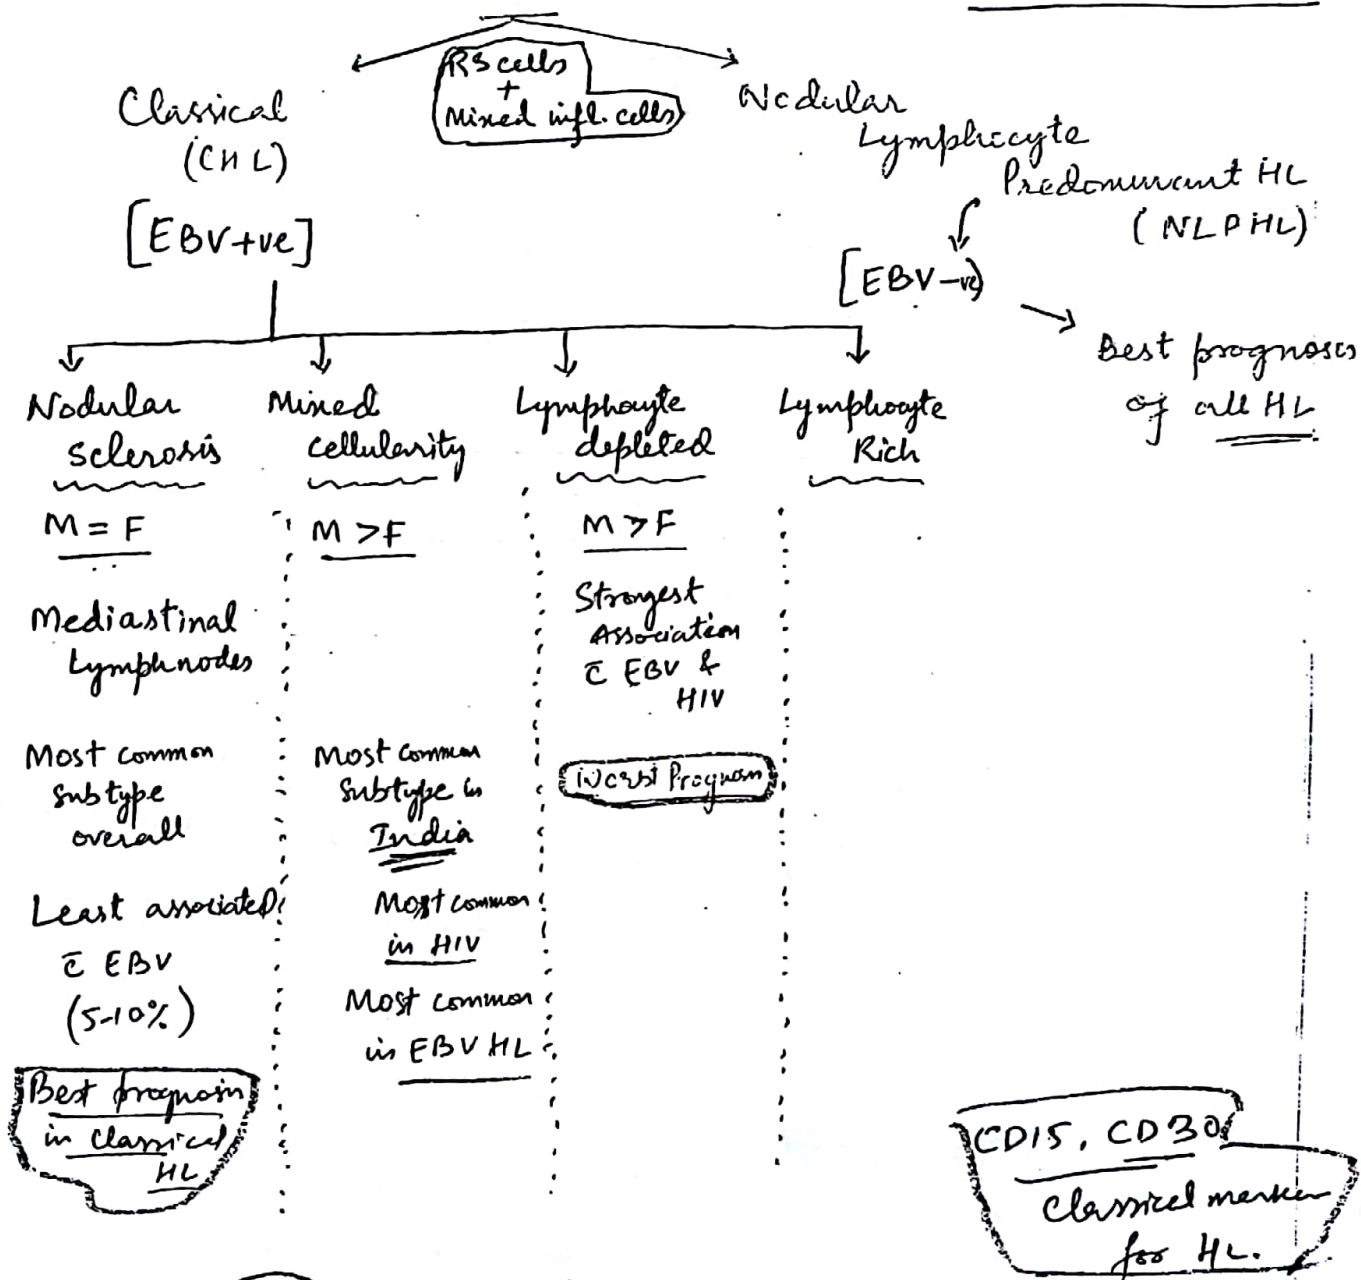 RS cells
+
Mixed infl. cells
Classical
(CHL)
[EBV+ve]
Nodular
Lymphocyte
Predominant HL
(NLPHL)
[EBV-ve)
Best prognosis
of all HL
Nodular
sclerosis
M = F
Mediastinal
Lymphnodes
Most common
subtype
overall
Least associated
c̄ EBV
(5-10%)
Best prognosis
in classical
HL
Mixed
cellularity
M > F
Most common
subtype in
India
Most common
in HIV
Most common
in EBV HL
Lymphocyte
depleted
M > F
Strongest
Association
c̄ EBV &
HIV
Worst Prognosis
Lymphocyte
Rich
CD15, CD30
Classical marker
for HL.